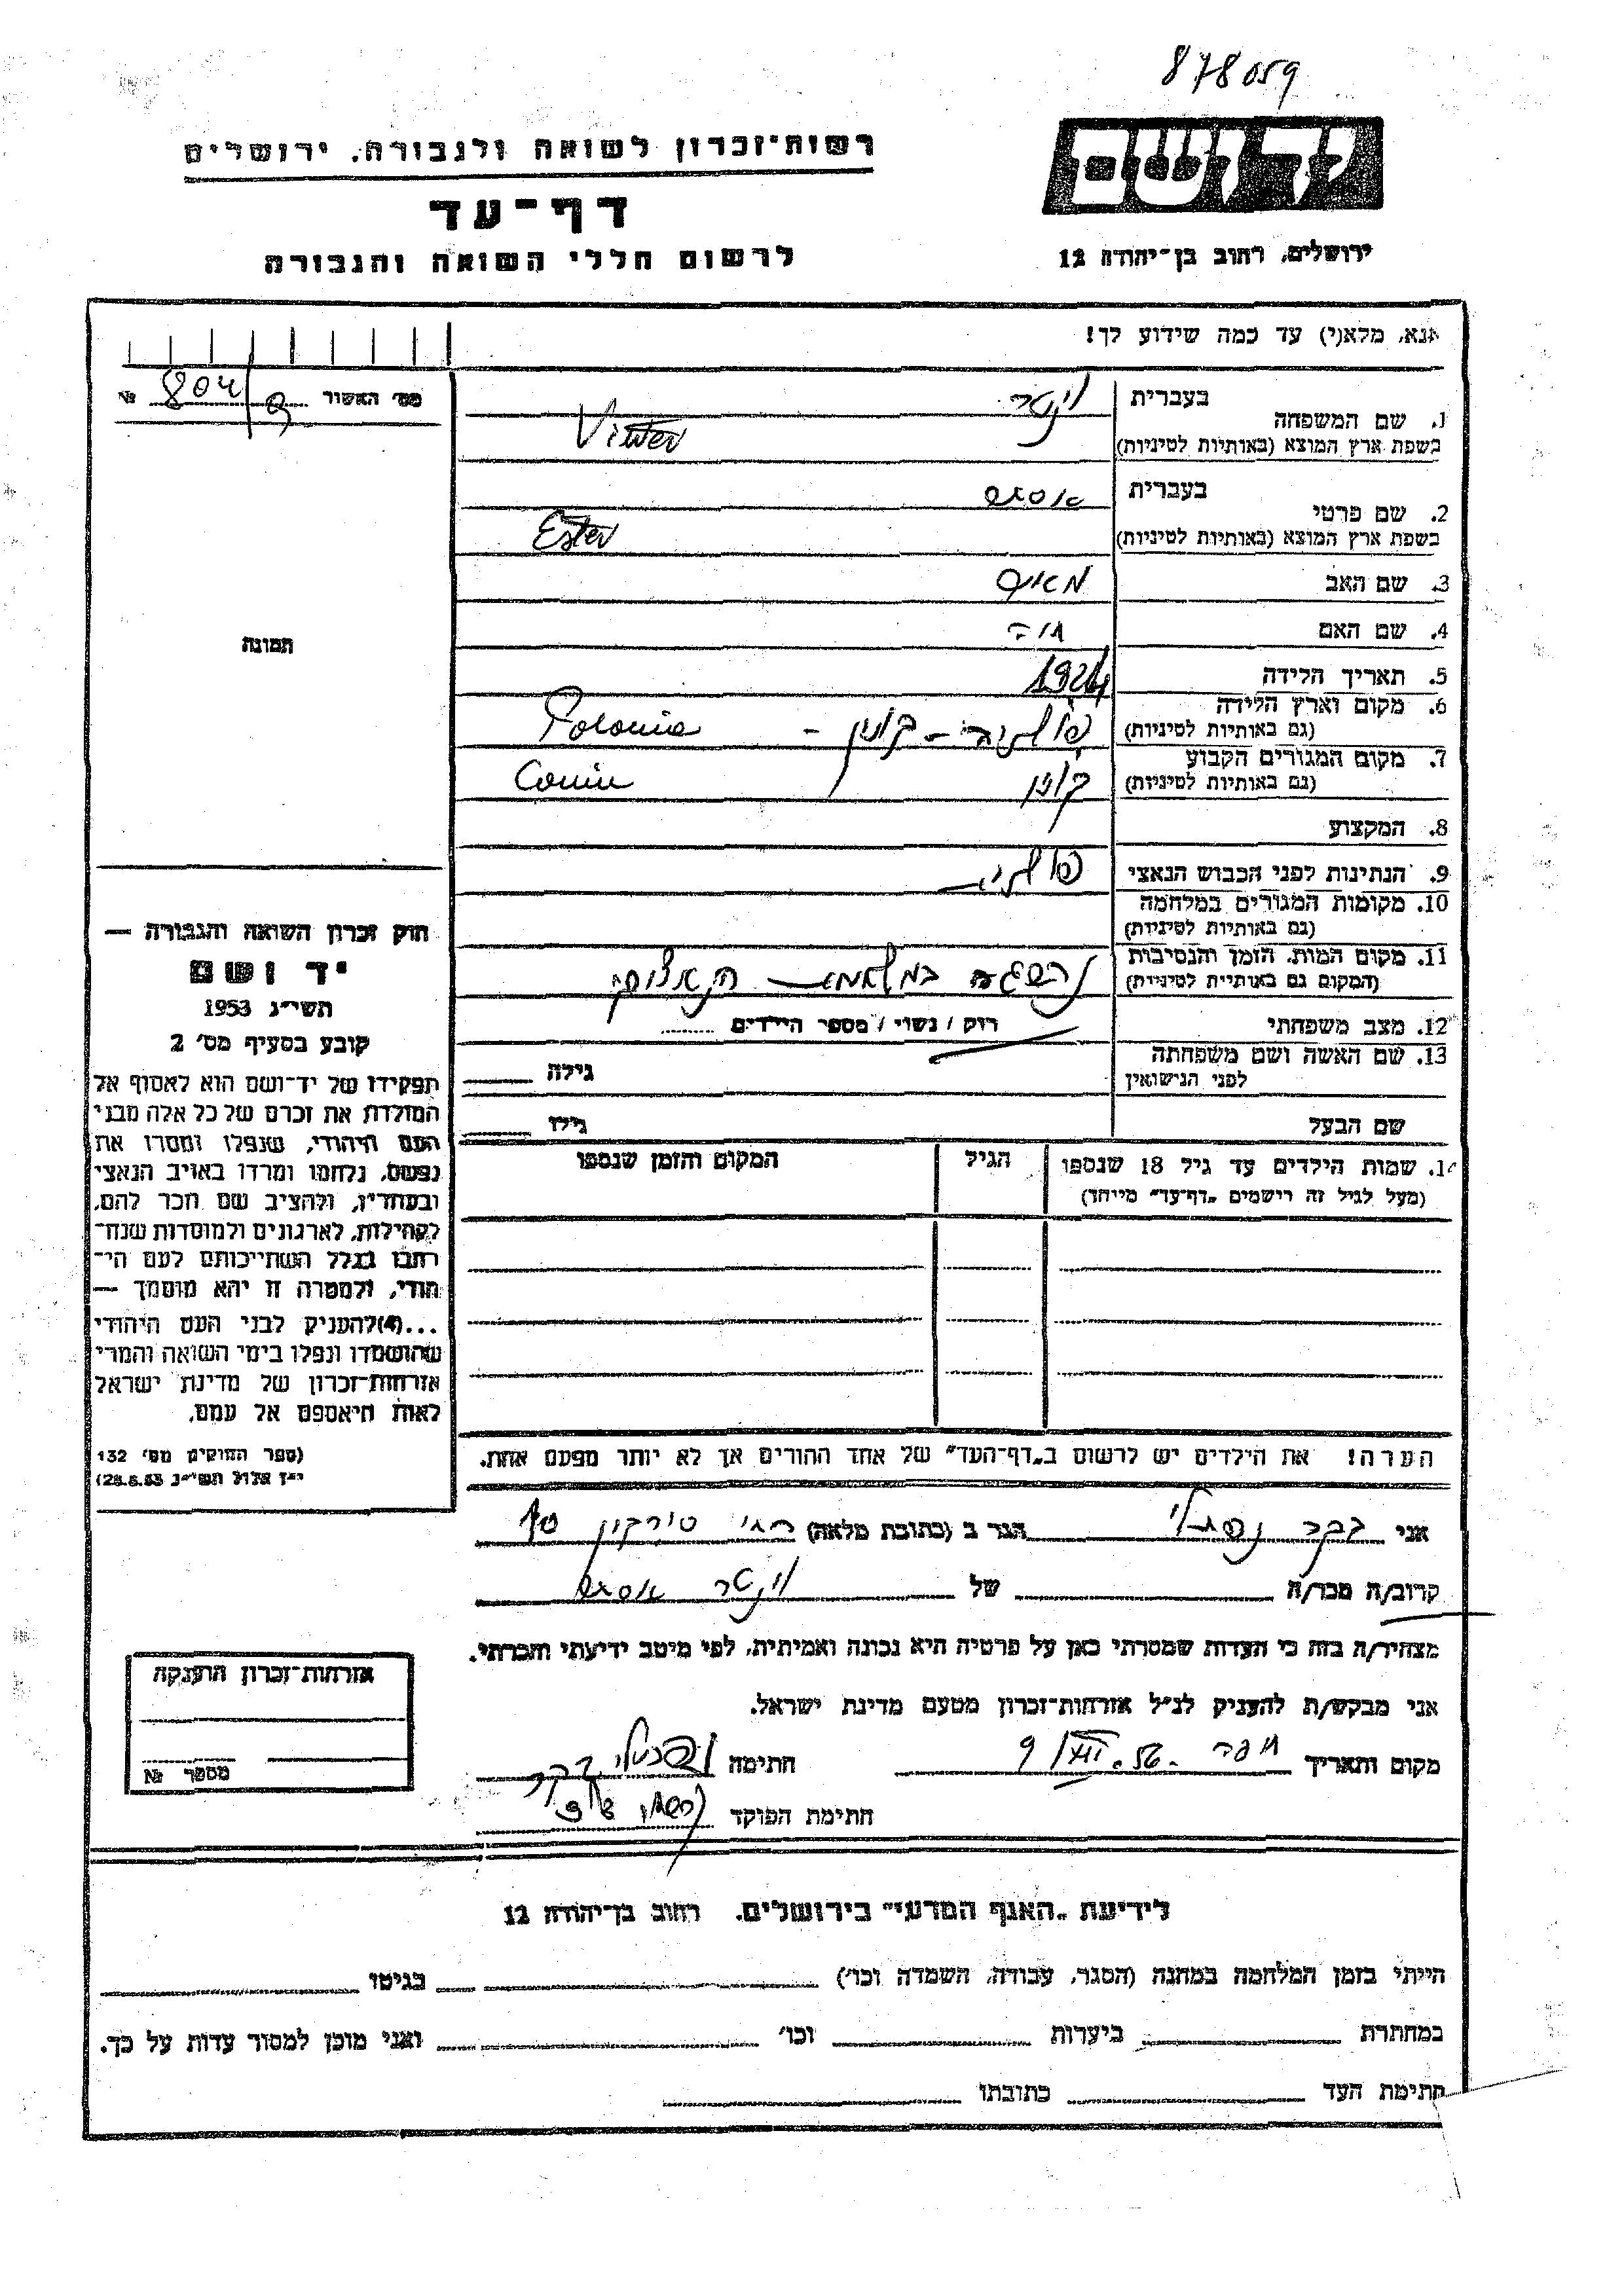 878059
רשות־זכרון לשואה ולגבורה, ירושלים
דף־עד
לרשום חללי השואה והגבורה
יד ושם
ירושלים, רחוב בן־יהודה 12
אנא, מלא(י) עד כמה שידוע לך!
מס׳ האשור № 804/9
1. שם המשפחה
בעברית וינטר
בשפת ארץ המוצא (באותיות לטיניות) Vinter
2. שם פרטי
בעברית אסתר
בשפת ארץ המוצא (באותיות לטיניות) Ester
3. שם האב מאיר
4. שם האם חוה
5. תאריך הלידה 1924
6. מקום וארץ הלידה
(גם באותיות לטיניות) פולניה - קונין - Polonia
7. מקום המגורים הקבוע
(גם באותיות לטיניות) קונין Conin
8. המקצוע
9. הנתינות לפני הכבוש הנאצי פולנית
10. מקומות המגורים במלחמה
(גם באותיות לטיניות)
11. מקום המות, הזמן והנסיבות
(המקום גם באותיית לטיניות) במלחמת
12. מצב משפחתי רוק / נשוי / מספר הילדים
13. שם האשה ושם משפחתה
לפני הנישואין גילה
שם הבעל גילו
14. שמות הילדים עד גיל 18 שנספו
(מעל לגיל זה רישמים „דף־עד״ מייחד)
הגיל
המקום והזמן שנספו
תמונה
חוק זכרון השואה והגבורה —
יד ושם
תשי״ג 1953
קובע בסעיף מס׳ 2
תפקידו של יד־ושם הוא לאסוף אל
המולדת את זכרם של כל אלה מבני
העם היהודי, שנפלו ומסרו את
נפשם, נלחמו ומרדו באויב הנאצי
ובעוזריו, ולהציב שם וזכר להם,
לקהילות, לארגונים ולמוסדות שנח־
רבו בגלל השתייכותם לעם הי־
הודי, ולמטרה זו יהא מוסמך —
...(4)להעניק לבני העם היהודי
שהושמדו ונפלו בימי השואה והמרי
אזרחות־זכרון של מדינת ישראל
לאות היאספם אל עמם.
(ספר החוקים מס׳ 132
י״ז אלול תשי״ג 28.8.53)
הערה! את הילדים יש לרשום ב„דף־העד״ של אחד ההורים אך לא יותר מפעם אחת.
אני בקר נפתלי הגר ב (כתובת מלאה) סירקין
קרוב/ה מכר/ה של וינטר אסתר
מצהיר/ה בזה כי העדות שמסרתי כאן על פרטיה היא נכונה ואמיתית, לפי מיטב ידיעתי והכרתי.
אני מבקש/ת להעניק לנ״ל אזרחות־זכרון מטעם מדינת ישראל.
מקום ותאריך 9/VIII. 56. חתימה נפתלי בקר
חתימת הפוקד
אזרחות־זכרון הוענקה
מספר №
לידיעת „האגף המדעי״ בירושלים. רחוב בן־יהודה 12
הייתי בזמן המלחמה במחנה (הסגר, עבודה, השמדה וכו׳) בגיטו
במחתרת ביערות וכו׳ ואני מוכן למסור עדות על כך.
חתימת העד כתובתו